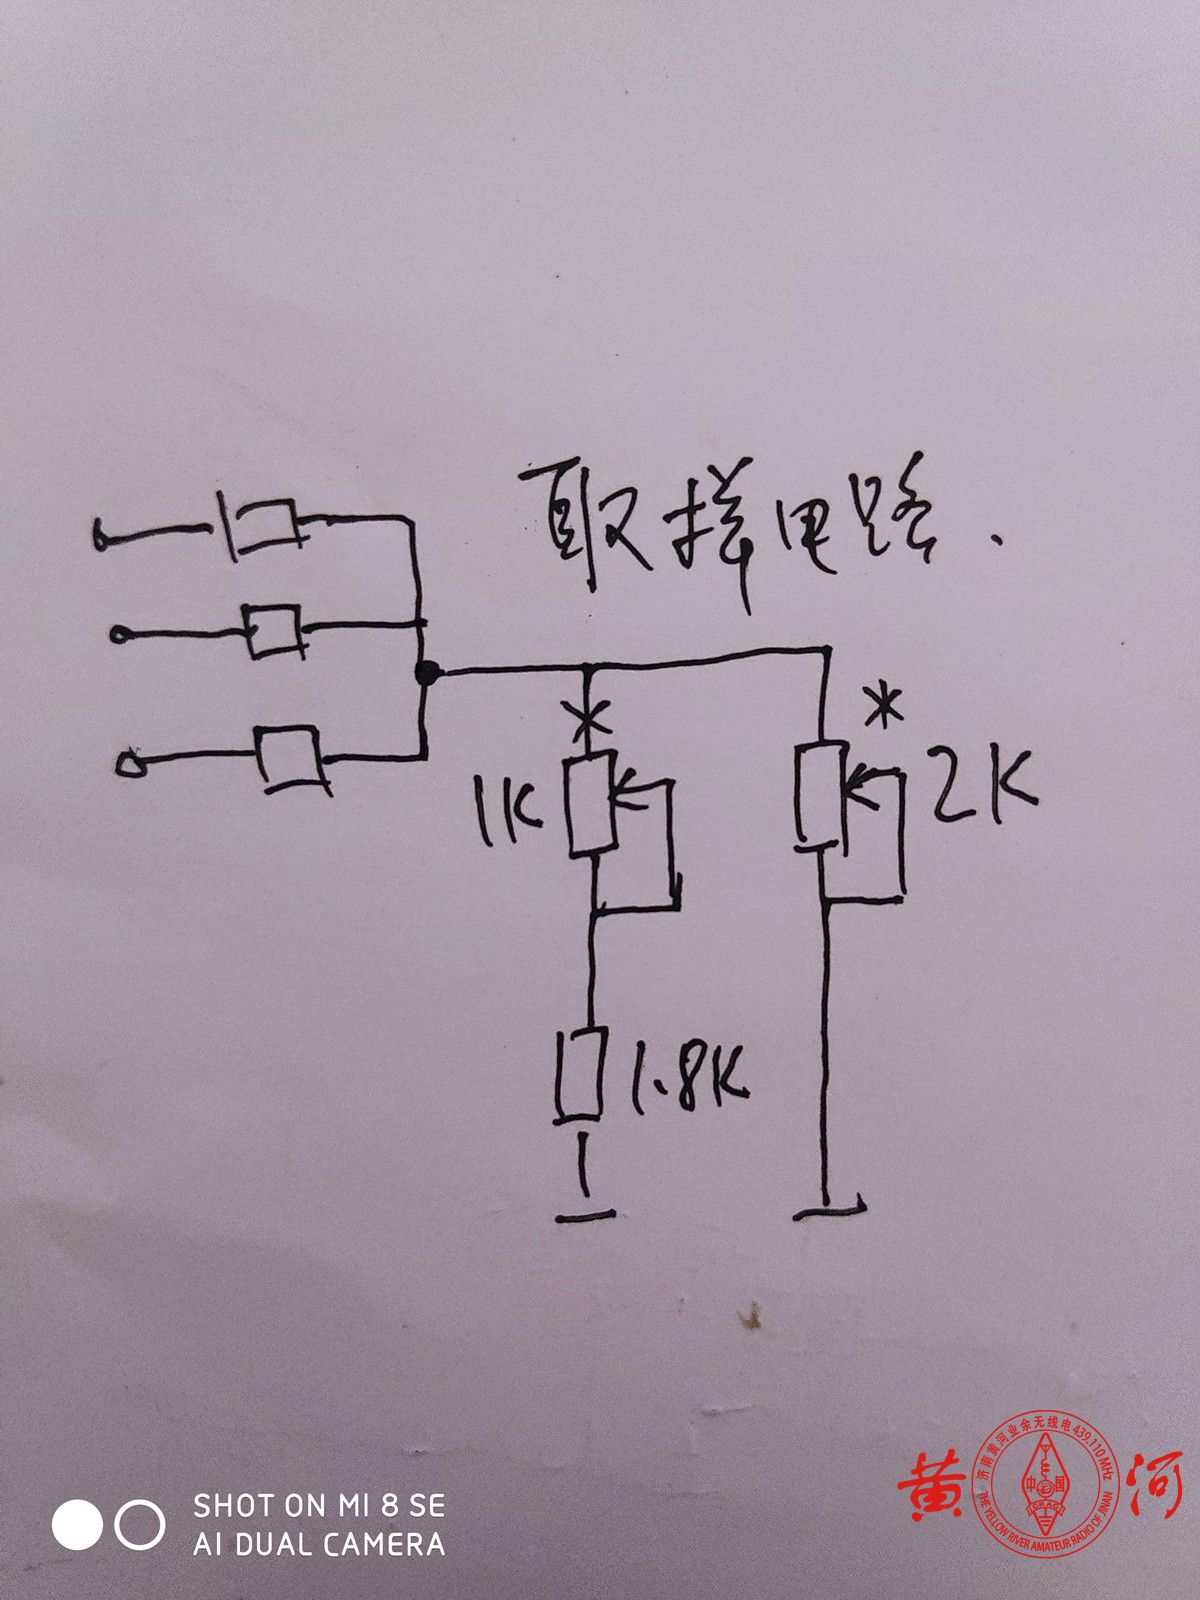 取样电路.
*
*
1K
2K
1.8K
SHOT ON MI 8 SE
AI DUAL CAMERA
黄河
济南黄河业余无线电439.110MHz
中国
CRAC
THE YELLOW RIVER AMATEUR RADIO OF JINAN